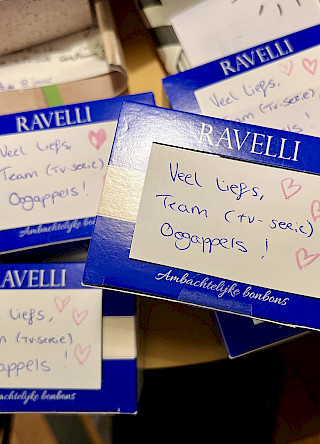 RAVELLI
Veel Liefs,
Team (tv-serie)
Oogappels!
Ambachtelijke bonbons
RAVELLI
Veel Liefs,
Team (TV-serie)
Oogappels!
Ambachtelijke bon
RAVELLI
Veel Liefs,
Team (tv-
RAVELLI
Liefs,
(tv-serie)
appels!
bonbons